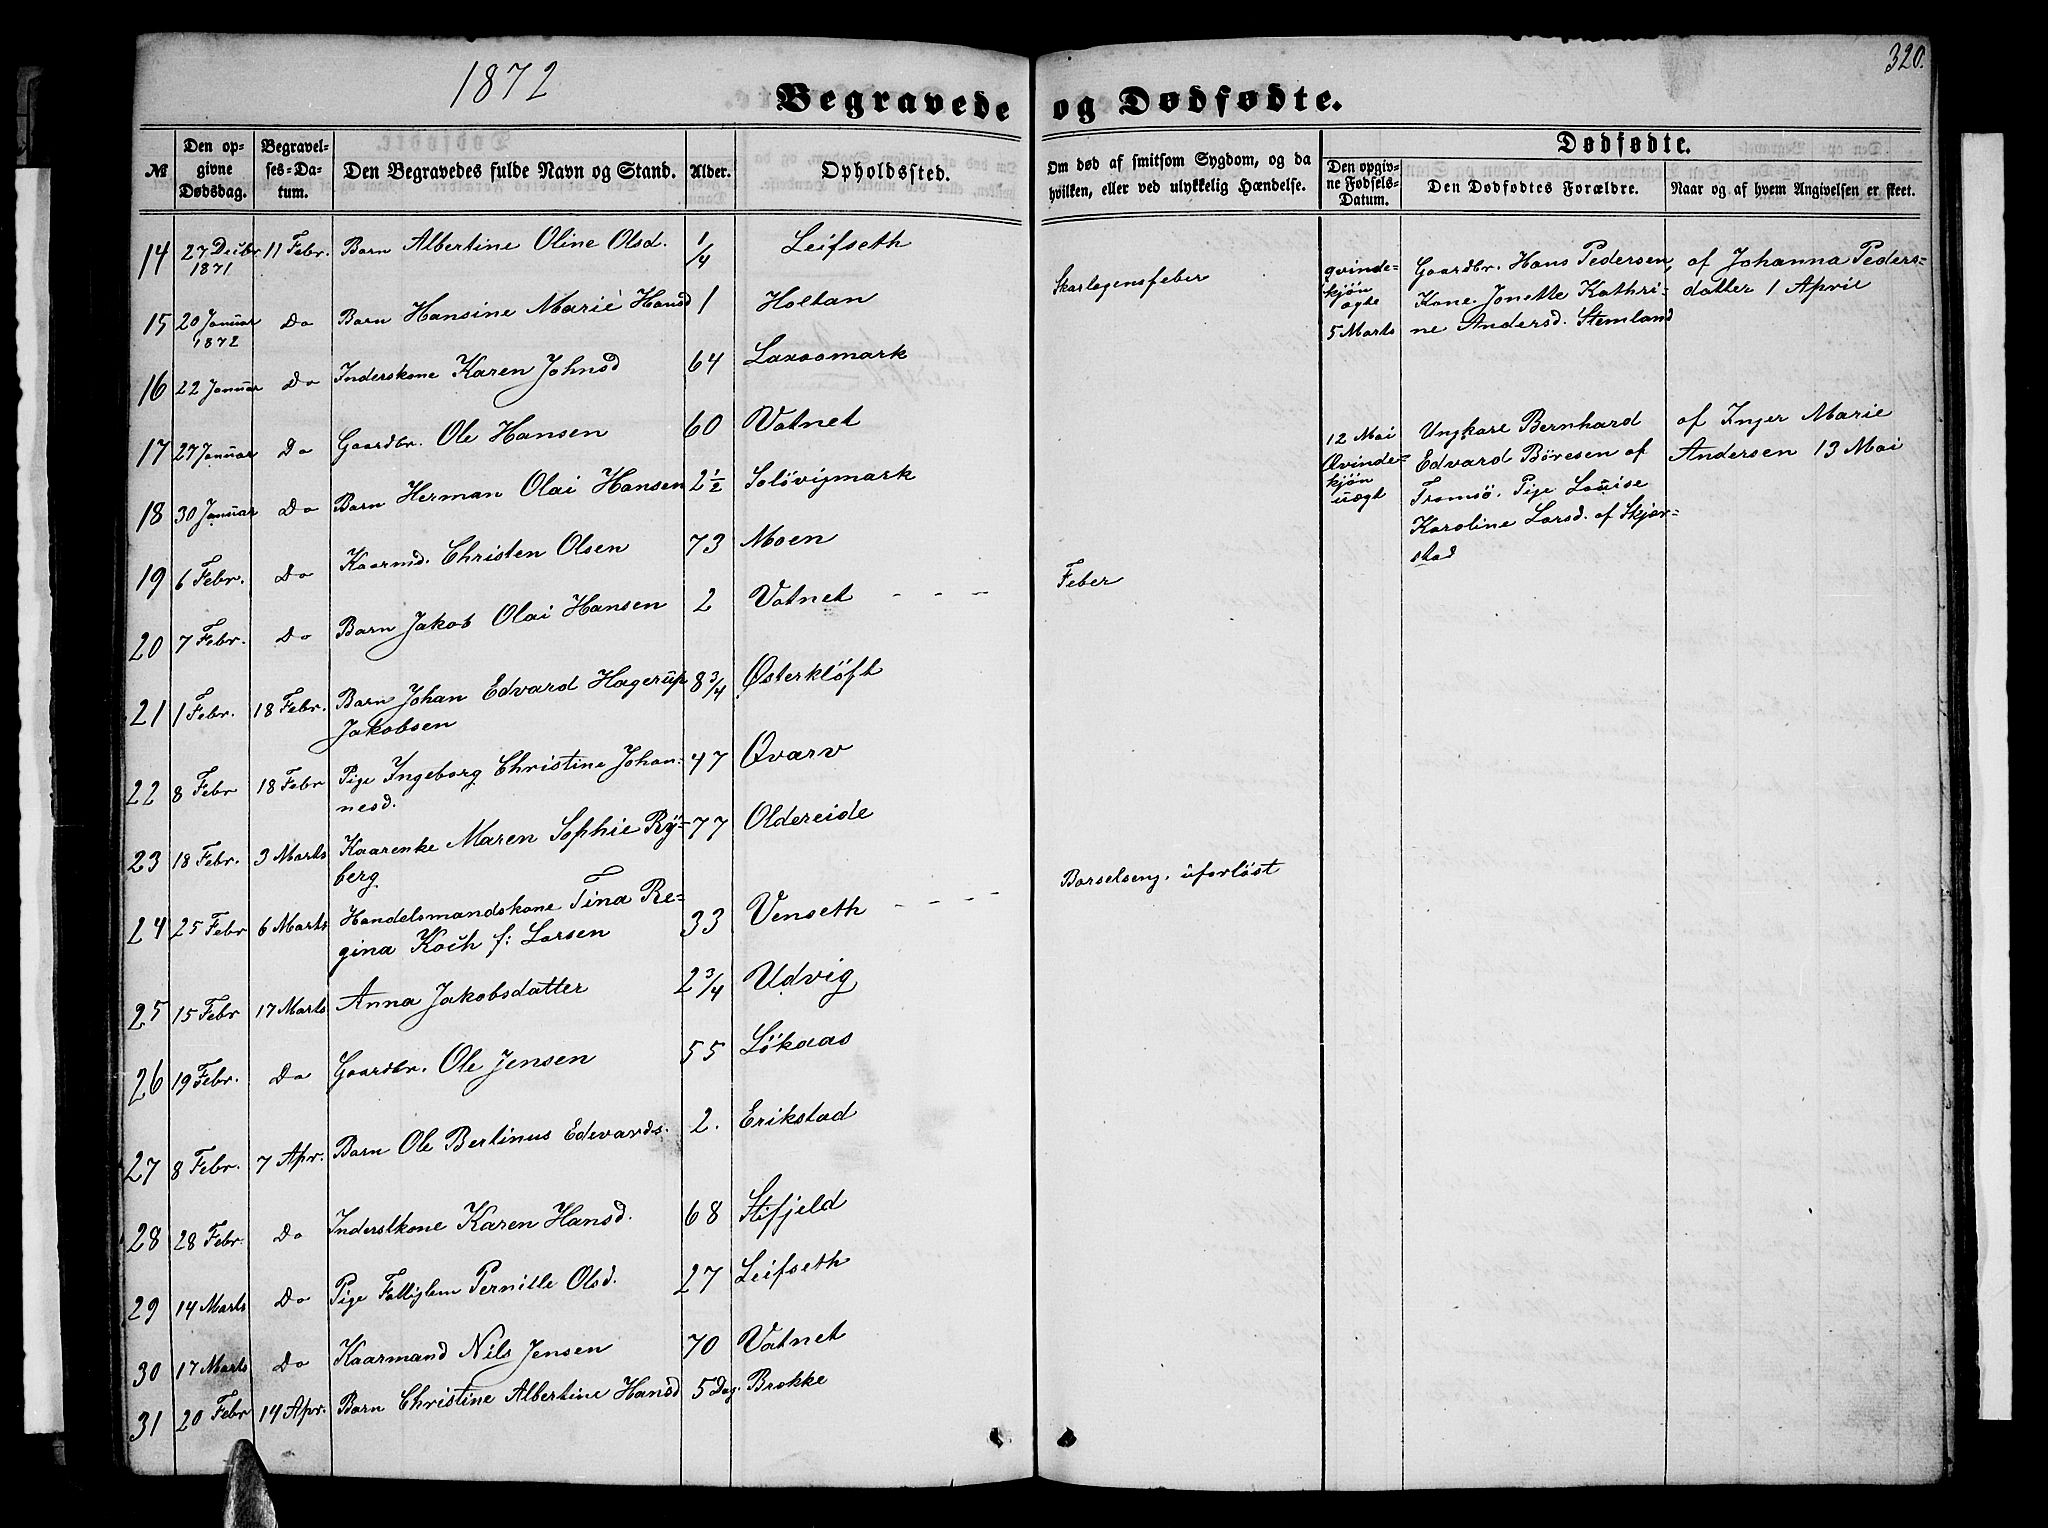 1872
320.
Begravede og Dødfødte.
№
Den op-
givne
Dødsdag.
Begravel-
ses-Da-
tum.
Den Begravedes fulde Navn og Stand.
Alder.
Opholdssted.
Om død af smitsom Sygdom, og da
hvilken, eller ved ulykkelig Hændelse.
Dødfødte.
Den opgiv-
ne Fødsels-
Datum.
Den Dødfødtes Forældre.
Naar og af hvem Angivelsen er skeet.
14 27 Decbr 11 Febr. Barn Albertine Oline Olsd. 1/4 Leifseth
1871
15 20 Januar Do Barn Hansine Marie Hansd 1 Holtan Skarlagensfeber
1872
16 22 Januar Do Inderskone Karen Johnsd 64 Laxaamark
17 27 Januar Do Gaardbr. Ole Hansen 60 Vatnet
18 30 Januar Do Barn Herman Olai Hansen 2 1/2 Soløvigmark
19 6 Febr. Do Kaarmd. Christen Olsen 73 Moen
20 7 Febr. Do Barn Jakob Olai Hansen 2 Vatnet - - - Feber
21 1 Febr. 18 Febr. Barn Johan Edvard Hagerup 8 3/4 Østerkløft
Jakobsen
22 8 Febr 18 Febr Pige Ingeborg Christine Johan- 47 Qvarv
nesd.
23 18 Febr. 3 Marts Kaarenke Maren Sophie Ry- 77 Oldereide
berg
24 25 Febr 6 Marts Handelsmandskone Tina Re- 33 Venseth - - - Barselseng, uforløst
gina Koch f: Larsen
25 15 Febr 17 Marts Anna Jakobsdatter 2 3/4 Udvig
26 19 Febr. Do Gaardbr. Ole Jensen 55 Løkaas
27 8 Febr. 7 Apr. Barn Ole Bertinus Edvards. 2. Erikstad
28 28 Febr. Do Inderstkone Karen Hansd. 68 Stifjeld
29 14 Marts Do Pige Pernille Olsd. 27 Leifseth
30 17 Marts Do Kaarmand Nils Jensen 70 Vatnet
31 20 Febr 14 Apr. Barn Christine Albertine Hansd 5 Dag. Brekke
qvinde-
kjøn
ægte
5 Marts
Gaardbr. Hans Pedersen,
Kone Jonette Kathri-
ne Andersd. Stemland
af Johanna Peders-
datter 1 April
12 Mai
Qvinde-
kjøn
uægt
Ungkarl Bernhard
Edvard Børesen af
Tromsø. Pige Louise
Karoline Larsd. af Skjer-
stad
af Inger Marie
Andersen 13 Mai